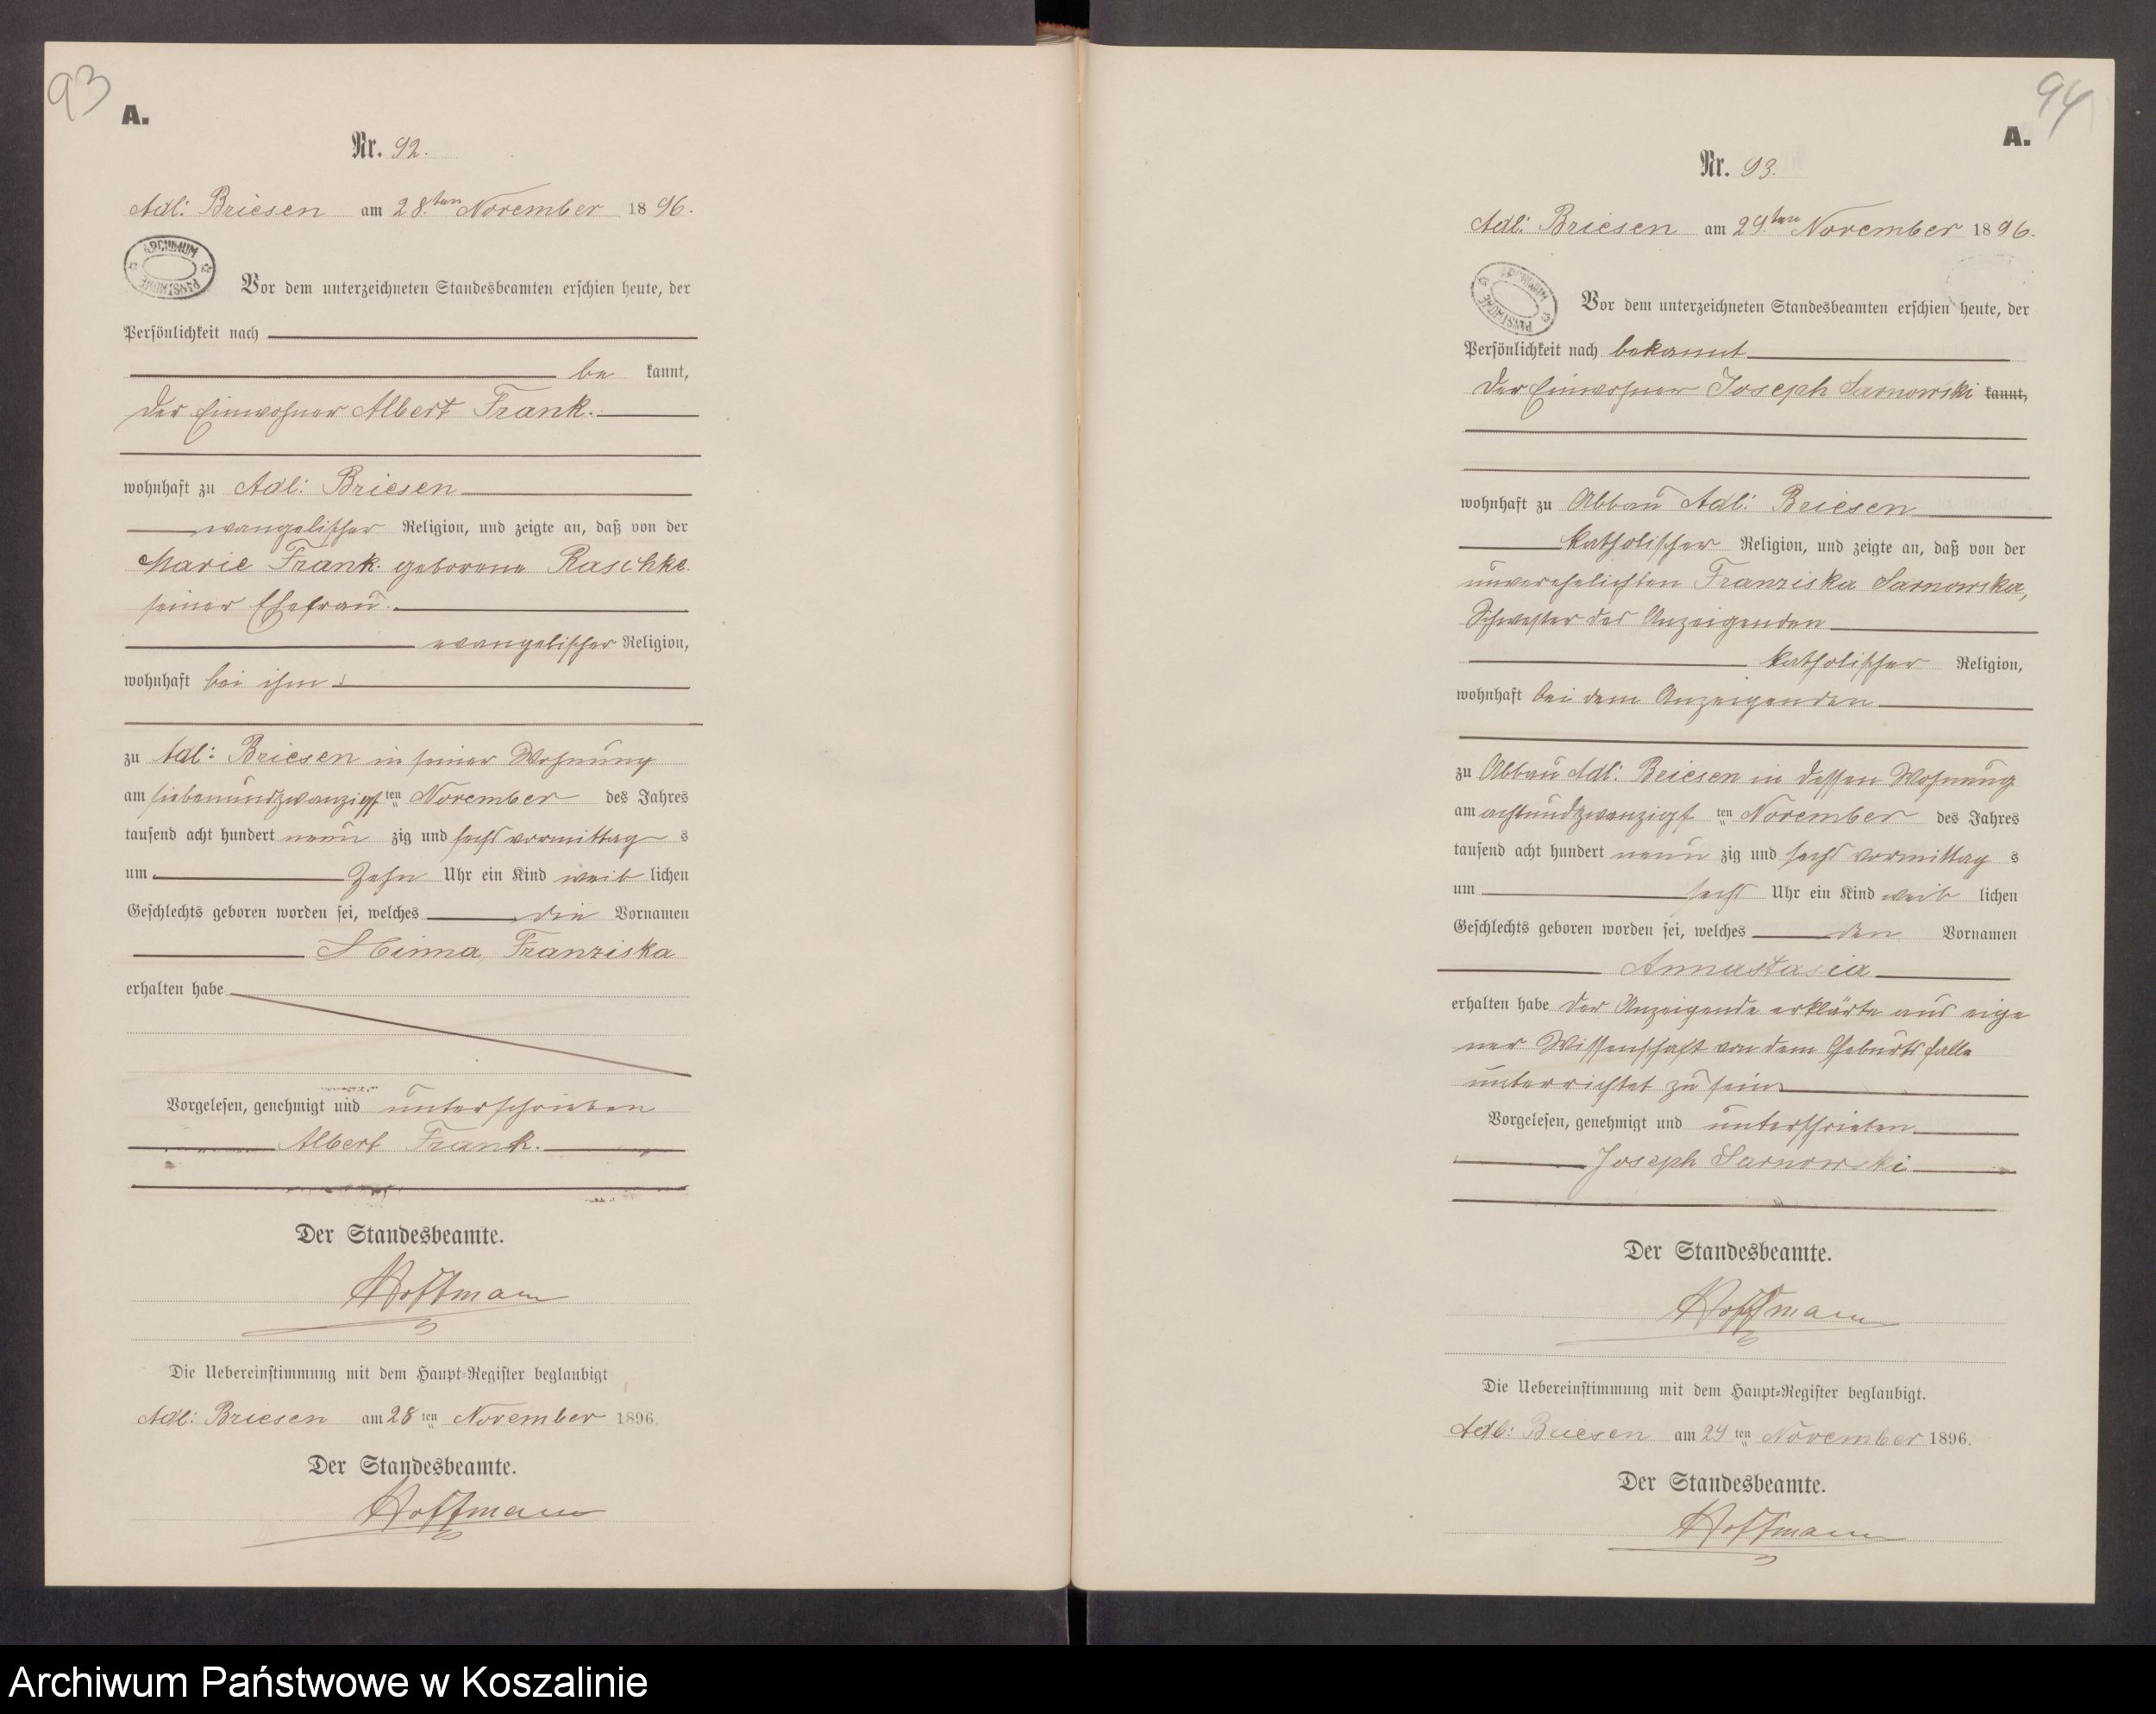 93
A.
Nr. 92.
Adl: Briesen am 28.ten November 1896.
ARCHIWUM
PAŃSTWOWE
Vor dem unterzeichneten Standesbeamten erschien heute, der
Persönlichkeit nach
be kannt,
der Einwohner Albert Frank.
wohnhaft zu Adl: Briesen
evangelischer Religion, und zeigte an, daß von der
Marie Frank geborene Raschke.
seiner Ehefrau.
evangelischer Religion,
wohnhaft bei ihm
zu Adl: Briesen in seiner Wohnung
am siebenundzwanzigsten November des Jahres
tausend acht hundert neun zig und sechs vormittag s
um Zehn Uhr ein Kind weib lichen
Geschlechts geboren worden sei, welches die Vornamen
Minna, Franziska
erhalten habe
Vorgelesen, genehmigt und unterschrieben
Albert Frank.
Der Standesbeamte.
Hoffmann
Die Uebereinstimmung mit dem Haupt-Register beglaubigt
Adl: Briesen am 28 ten November 1896.
Der Standesbeamte.
Hoffmann
94
A.
Nr. 93.
Adl: Briesen am 29.ten November 1896.
ARCHIWUM
PAŃSTWOWE
Vor dem unterzeichneten Standesbeamten erschien heute, der
Persönlichkeit nach bekannt
der Einwohner Joseph Sarnowski kannt,
wohnhaft zu Abbau Adl: Briesen
katholischer Religion, und zeigte an, daß von der
unverehelichten Franziska Sarnowska,
Schwester des Anzeigenden
katholischer Religion,
wohnhaft bei dem Anzeigenden
zu Abbau Adl: Briesen in dessen Wohnung
am achtundzwanzigsten November des Jahres
tausend acht hundert neun zig und sechs vormittag s
um sechs Uhr ein Kind weib lichen
Geschlechts geboren worden sei, welches den Vornamen
Annastasia
erhalten habe der Anzeigende erklärte aus eige
ner Wissenschaft von dem Geburtsfalle
unterrichtet zu sein
Vorgelesen, genehmigt und unterschrieben
Joseph Sarnowski
Der Standesbeamte.
Hoffmann
Die Uebereinstimmung mit dem Haupt-Register beglaubigt.
Adl: Briesen am 29 ten November 1896.
Der Standesbeamte.
Hoffmann
Archiwum Państwowe w Koszalinie